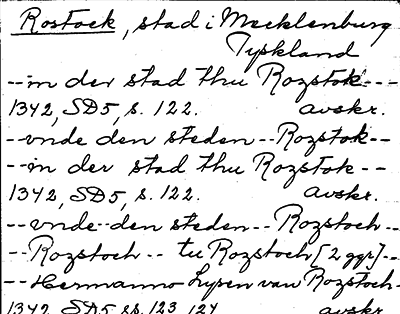 Rostock, stad i Mecklenburg
Tyskland
--in der stad thu Rozstok---
1342, SD5, s. 122. avskr.
--vnde den steden--Rozstok--
--in der stad thu Rozstok--
1342, SD5, s. 122. avskr.
--vnde den steden--Rozstoch--
--Rozstoch--tu Rozstoch [2 ggr]--
--Hermanno Lysen van Rozstoch-
1342 SD5 ss. 123, 124 avskr.